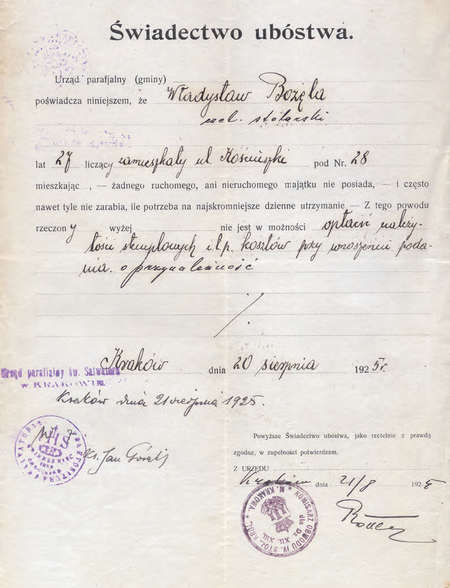 Świadectwo ubóstwa.
Urząd parafjalny (gminy)
poświadcza niniejszem, że Władysław Bożęta
czel. stolarski
lat 27 liczący zamieszkały ul. Kościuszki pod Nr. 28
mieszkając , — żadnego ruchomego, ani nieruchomego majątku nie posiada, — i często
nawet tyle nie zarabia, ile potrzeba na najskromniejsze dzienne utrzymanie. — Z tego powodu
rzeczony wyżej nie jest w możności opłacić należy-
tości stemplowych i t.p. kosztów przy wnoszeniu poda-
nia o przynależność
Kraków dnia 20 sierpnia 1925 r.
Urząd parafialny św. Salwatora
w KRAKOWIE
Kraków dnia 21 sierpnia 1925.
Ks. Jan
Powyższe Świadectwo ubóstwa, jako rzetelnie z prawdą
zgodne, w zupełności potwierdzam.
Z URZĘDU
Kraków dnia 21/8 1925
KOMISARZ OBWODU IV. STOŁ. KRÓL. M. KRAKOWA
Dla Dz. XII. XIII.